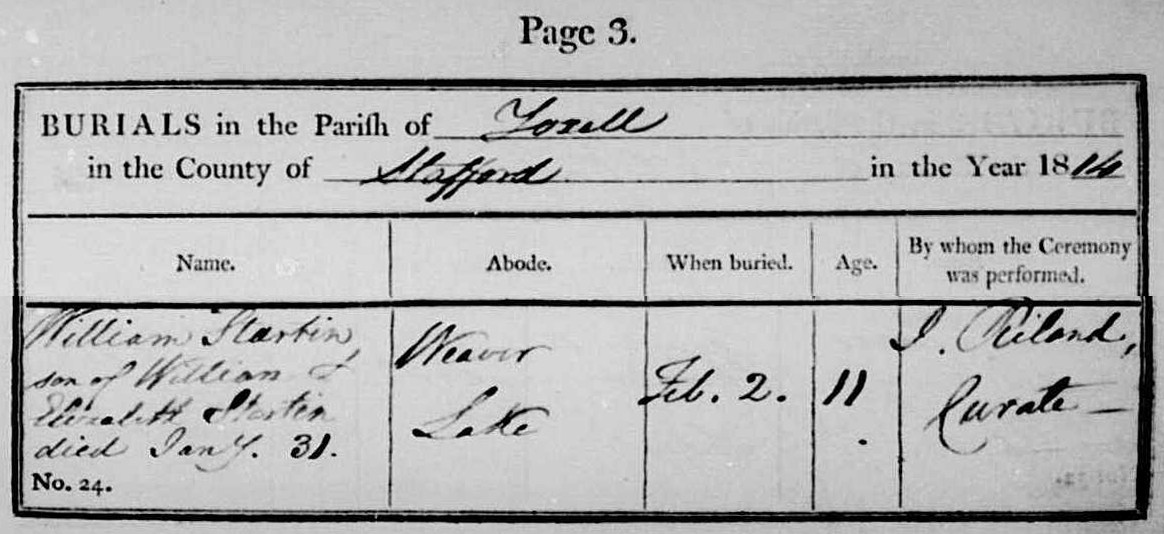 Page 3.
BURIALS in the Pariſh of Yoxall
in the County of Stafford in the Year 1814
Name. Abode. When buried. Age. By whom the Ceremony was performed.
William Startin
son of William &
Elizabeth Startin
died Jany. 31.
Weaver
Lake
Feb. 2.
11
J. Riland,
Curate
No. 24.